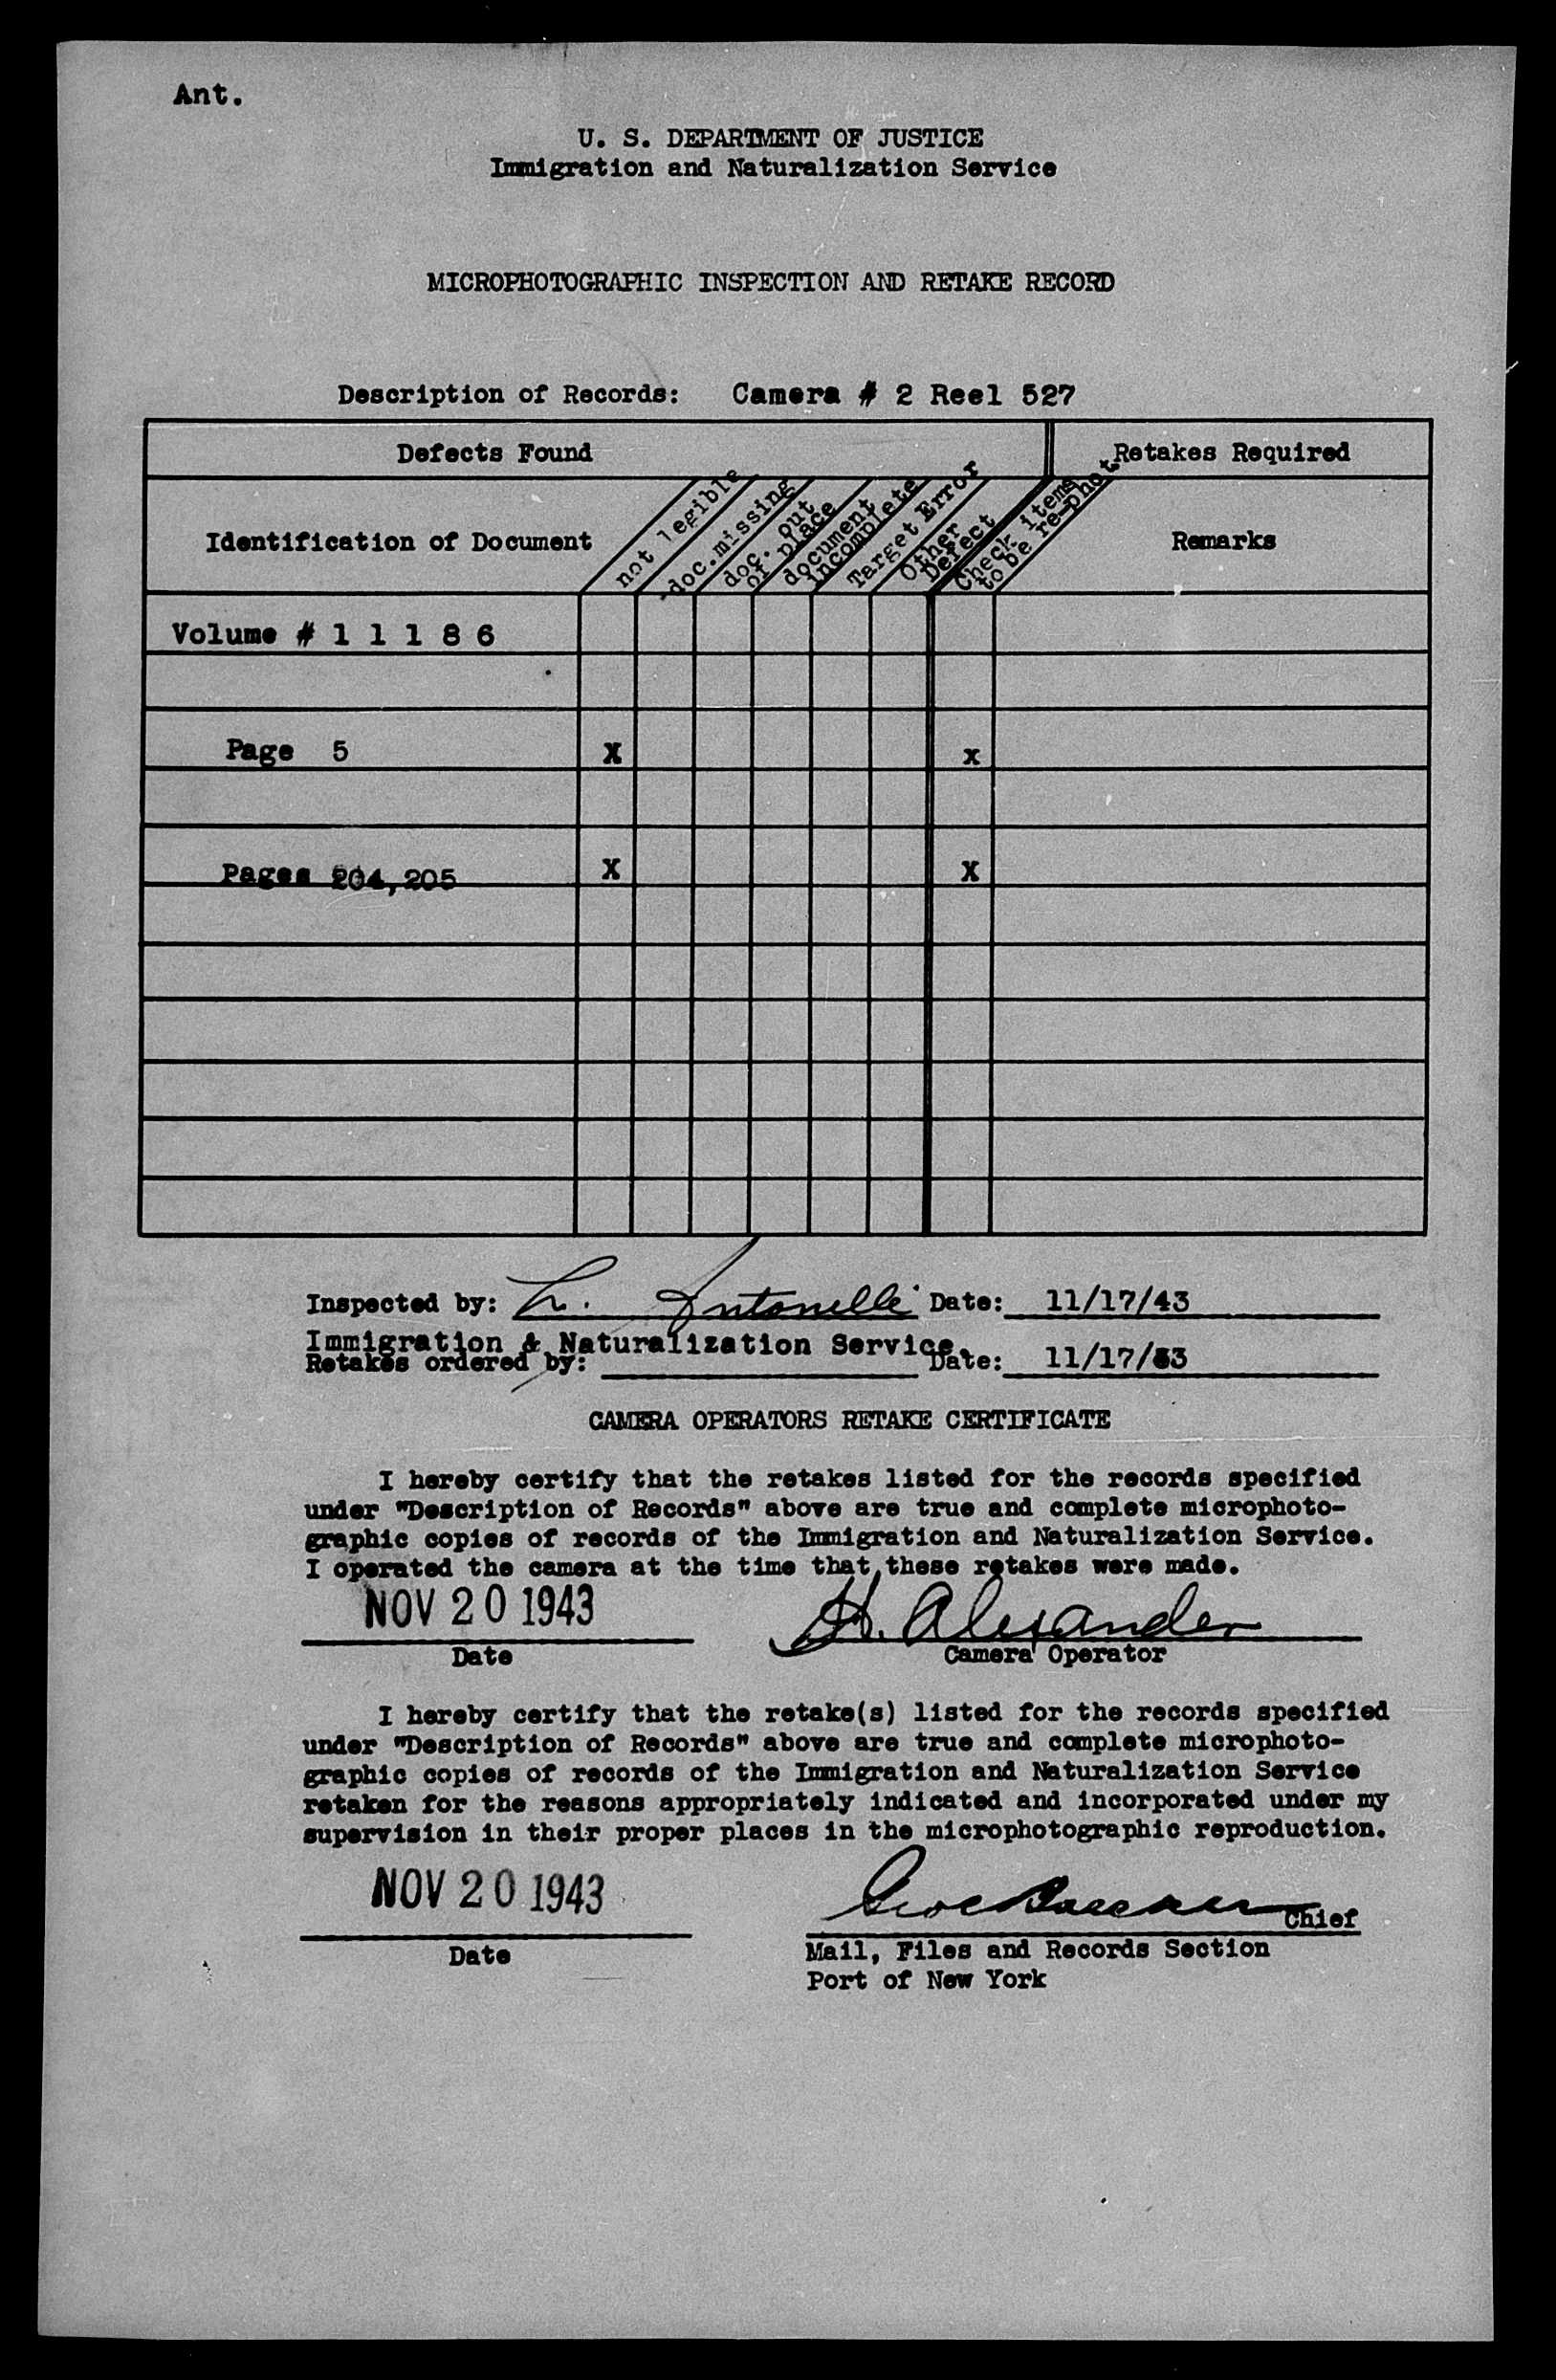 Ant.
U. S. DEPARTMENT OF JUSTICE
Immigration and Naturalization Service
MICROPHOTOGRAPHIC INSPECTION AND RETAKE RECORD
Description of Records: Camera # 2 Reel 527
Defects Found
Retakes Required
Identification of Document
not legible
doc.missing
doc. out
of place
document
incomplete
Target Error
Other
Defect
Check items
to be re-phot.
Remarks
Volume # 1 1 1 8 6
Page 5 X x
Pages 204,205 X X
Inspected by: L. Antonelli Date: 11/17/43
Immigration & Naturalization Service.
Retakes ordered by: Date: 11/17/43
CAMERA OPERATORS RETAKE CERTIFICATE
I hereby certify that the retakes listed for the records specified
under "Description of Records" above are true and complete microphoto-
graphic copies of records of the Immigration and Naturalization Service.
I operated the camera at the time that these retakes were made.
NOV 20 1943 H. Alexander
Date Camera Operator
I hereby certify that the retake(s) listed for the records specified
under "Description of Records" above are true and complete microphoto-
graphic copies of records of the Immigration and Naturalization Service
retaken for the reasons appropriately indicated and incorporated under my
supervision in their proper places in the microphotographic reproduction.
NOV 20 1943 Chief
Date Mail, Files and Records Section
Port of New York